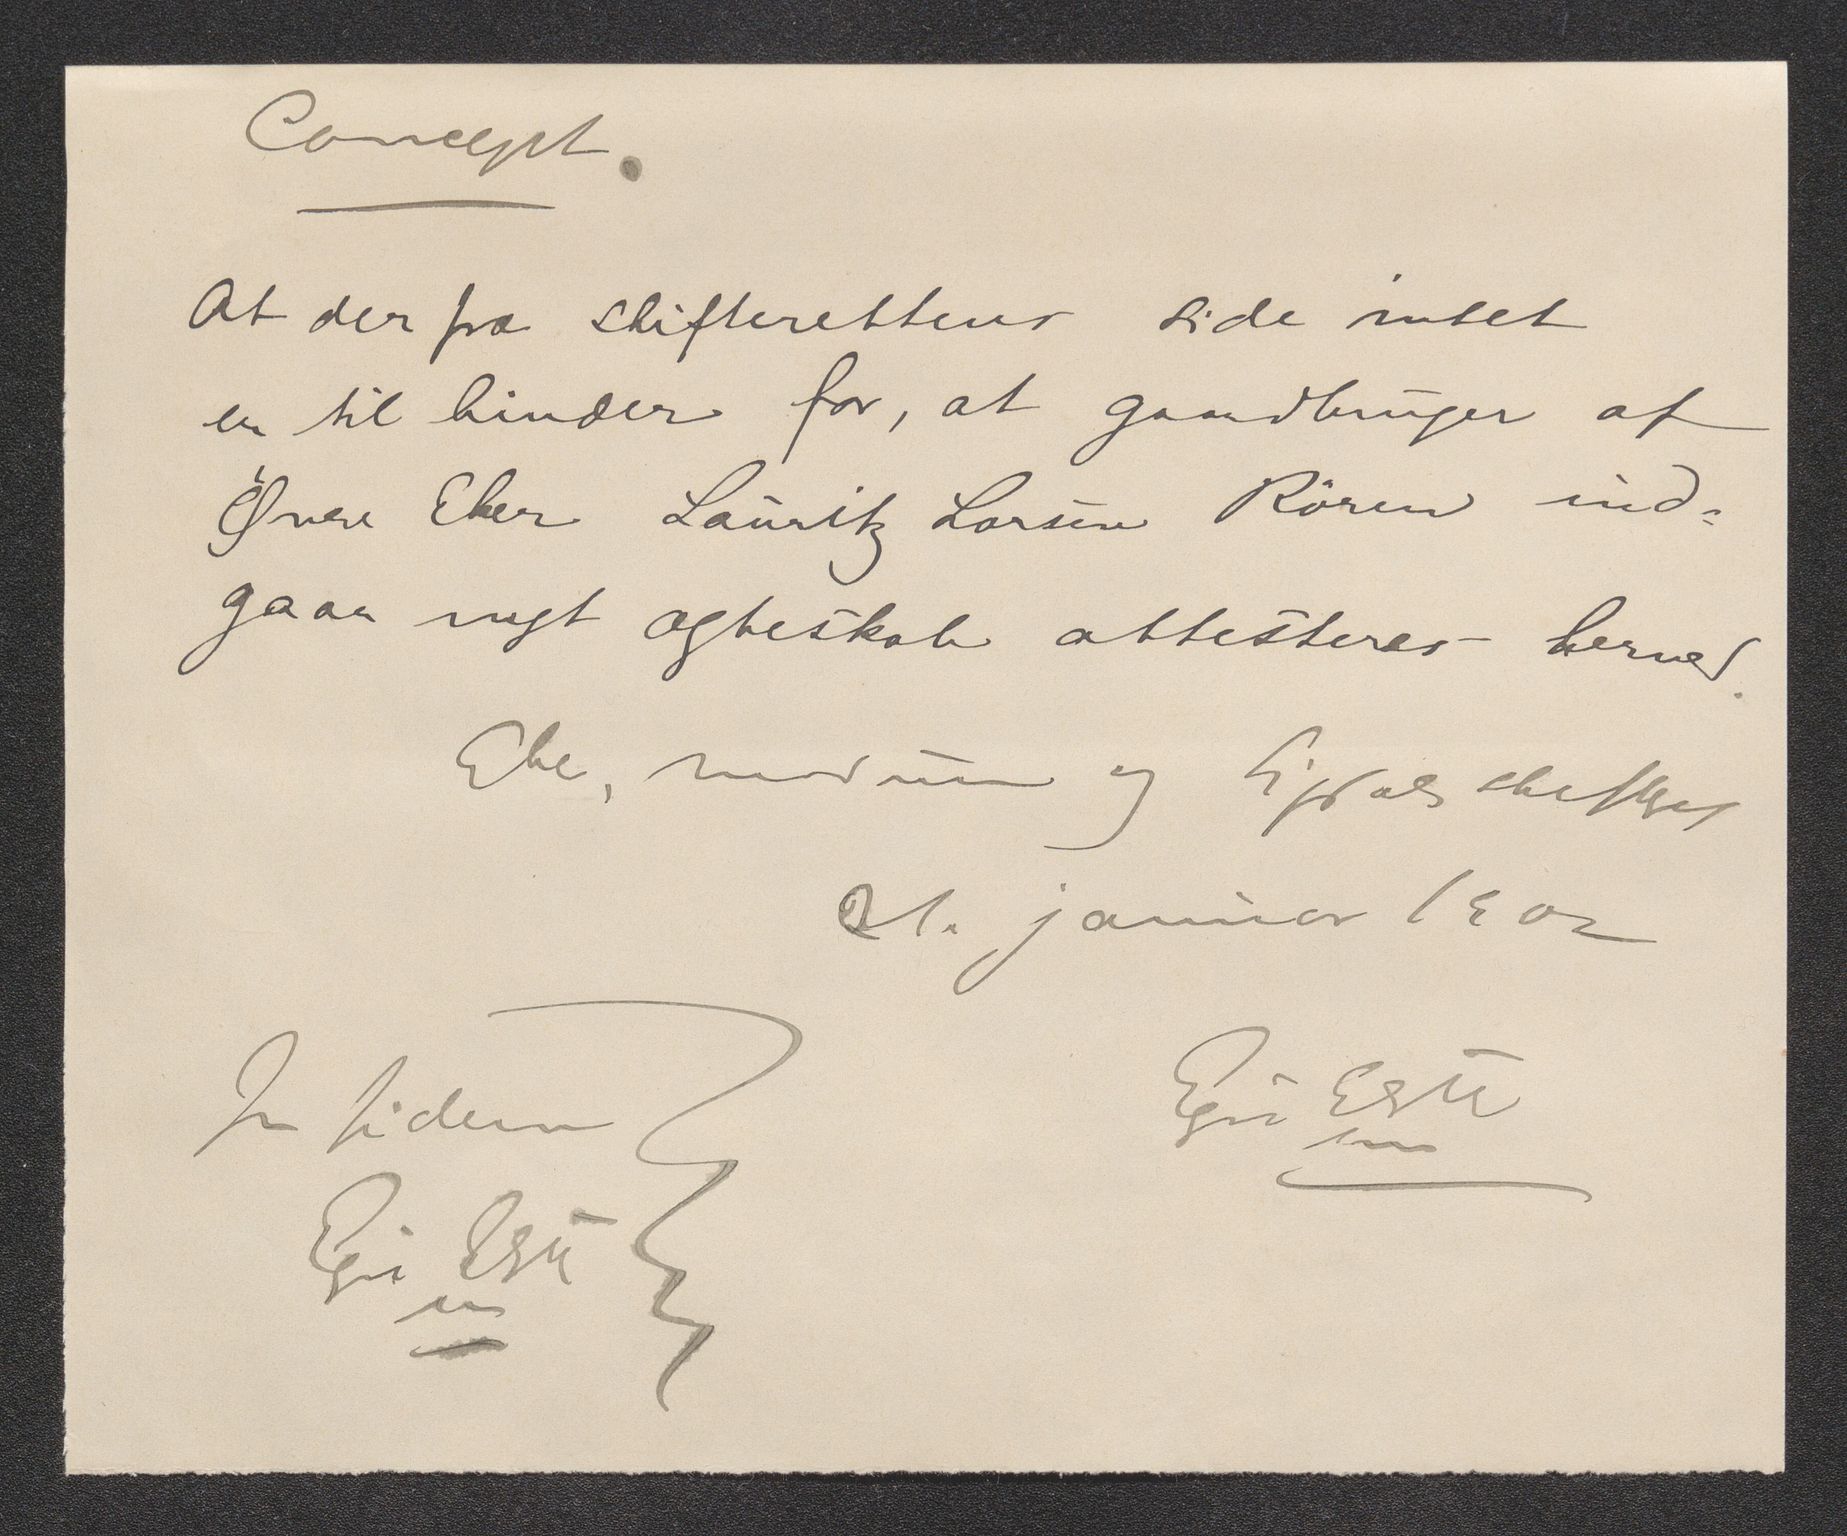 Concept.
At der fra skifterettens side intet
er til hinder for, at gaardbruger af
Øvre Eker Lauritz Larsen Rören ind-
gaar nyt ægteskab attesteres herved.
Eker, modum og Sigdals
21. januar 1902
In fidem